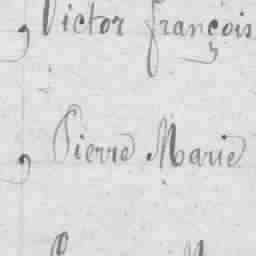 , Victor François
, Pierre Marie